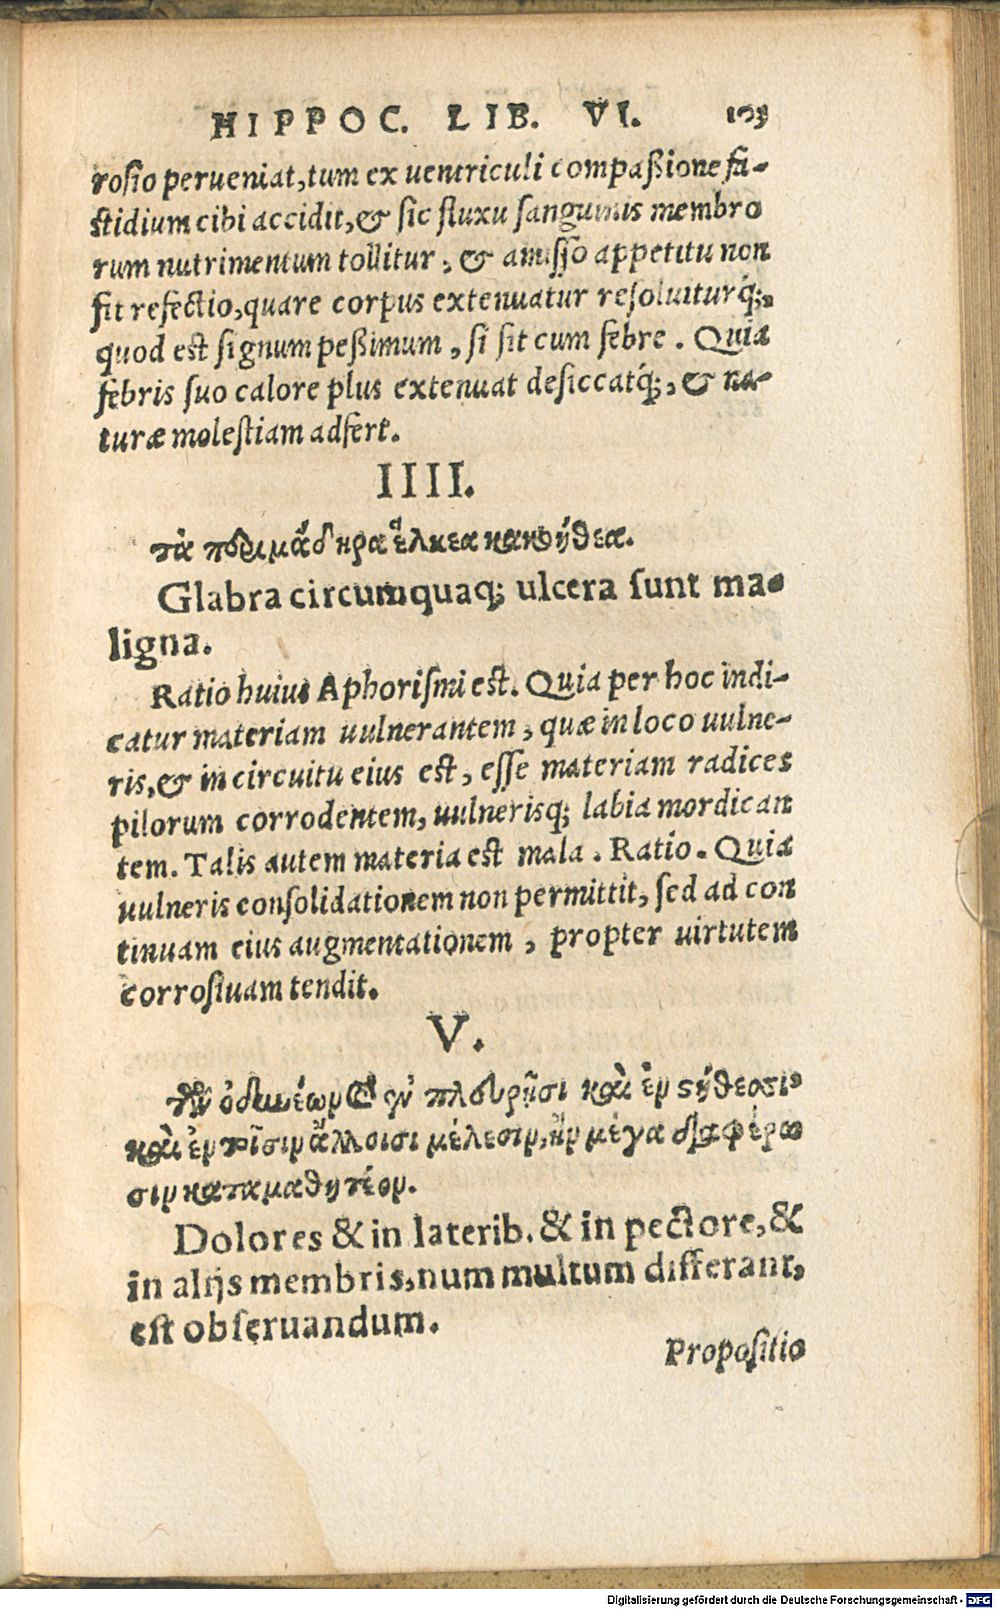 HIPPOC. LIB. VI. 103
rosio perueniat, tum ex uentriculi compaßione fa-
stidium cibi accidit, & sic fluxu sanguinis membro
rum nutrimentum tollitur, & amisso appetitu non
fit refectio, quare corpus extenuatur resoluiturq́;,
quod est signum peßimum, si sit cum febre. Quia
febris suo calore plus extenuat desiccatq́;, & na-
turæ molestiam adfert.
IIII.
τὰ περιμάδηρα ἕλκεα κακοήθεα.
Glabra circumquaq; ulcera sunt ma-
ligna.
Ratio huius Aphorismi est. Quia per hoc indi-
catur materiam uulnerantem, quæ in loco uulne-
ris, & in circuitu eius est, esse materiam radices
pilorum corrodentem, uulnerisq; labia mordican
tem. Talis autem materia est mala. Ratio. Quia
uulneris consolidationem non permittit, sed ad con
tinuam eius augmentationem, propter uirtutem
corrosiuam tendit.
V.
τῶν ὀδυνέων καὶ ἐν πλευρῇσι καὶ ἐν στήθεσσι
καὶ ἐν τοῖσιν ἄλλοισι μέλεσιν, ἢν μέγα διαφέρω
σιν καταμαθητέον.
Dolores & in laterib. & in pectore, &
in alijs membris, num multum differant,
est obseruandum.
Propositio
Digitalisierung gefördert durch die Deutsche Forschungsgemeinschaft - DFG